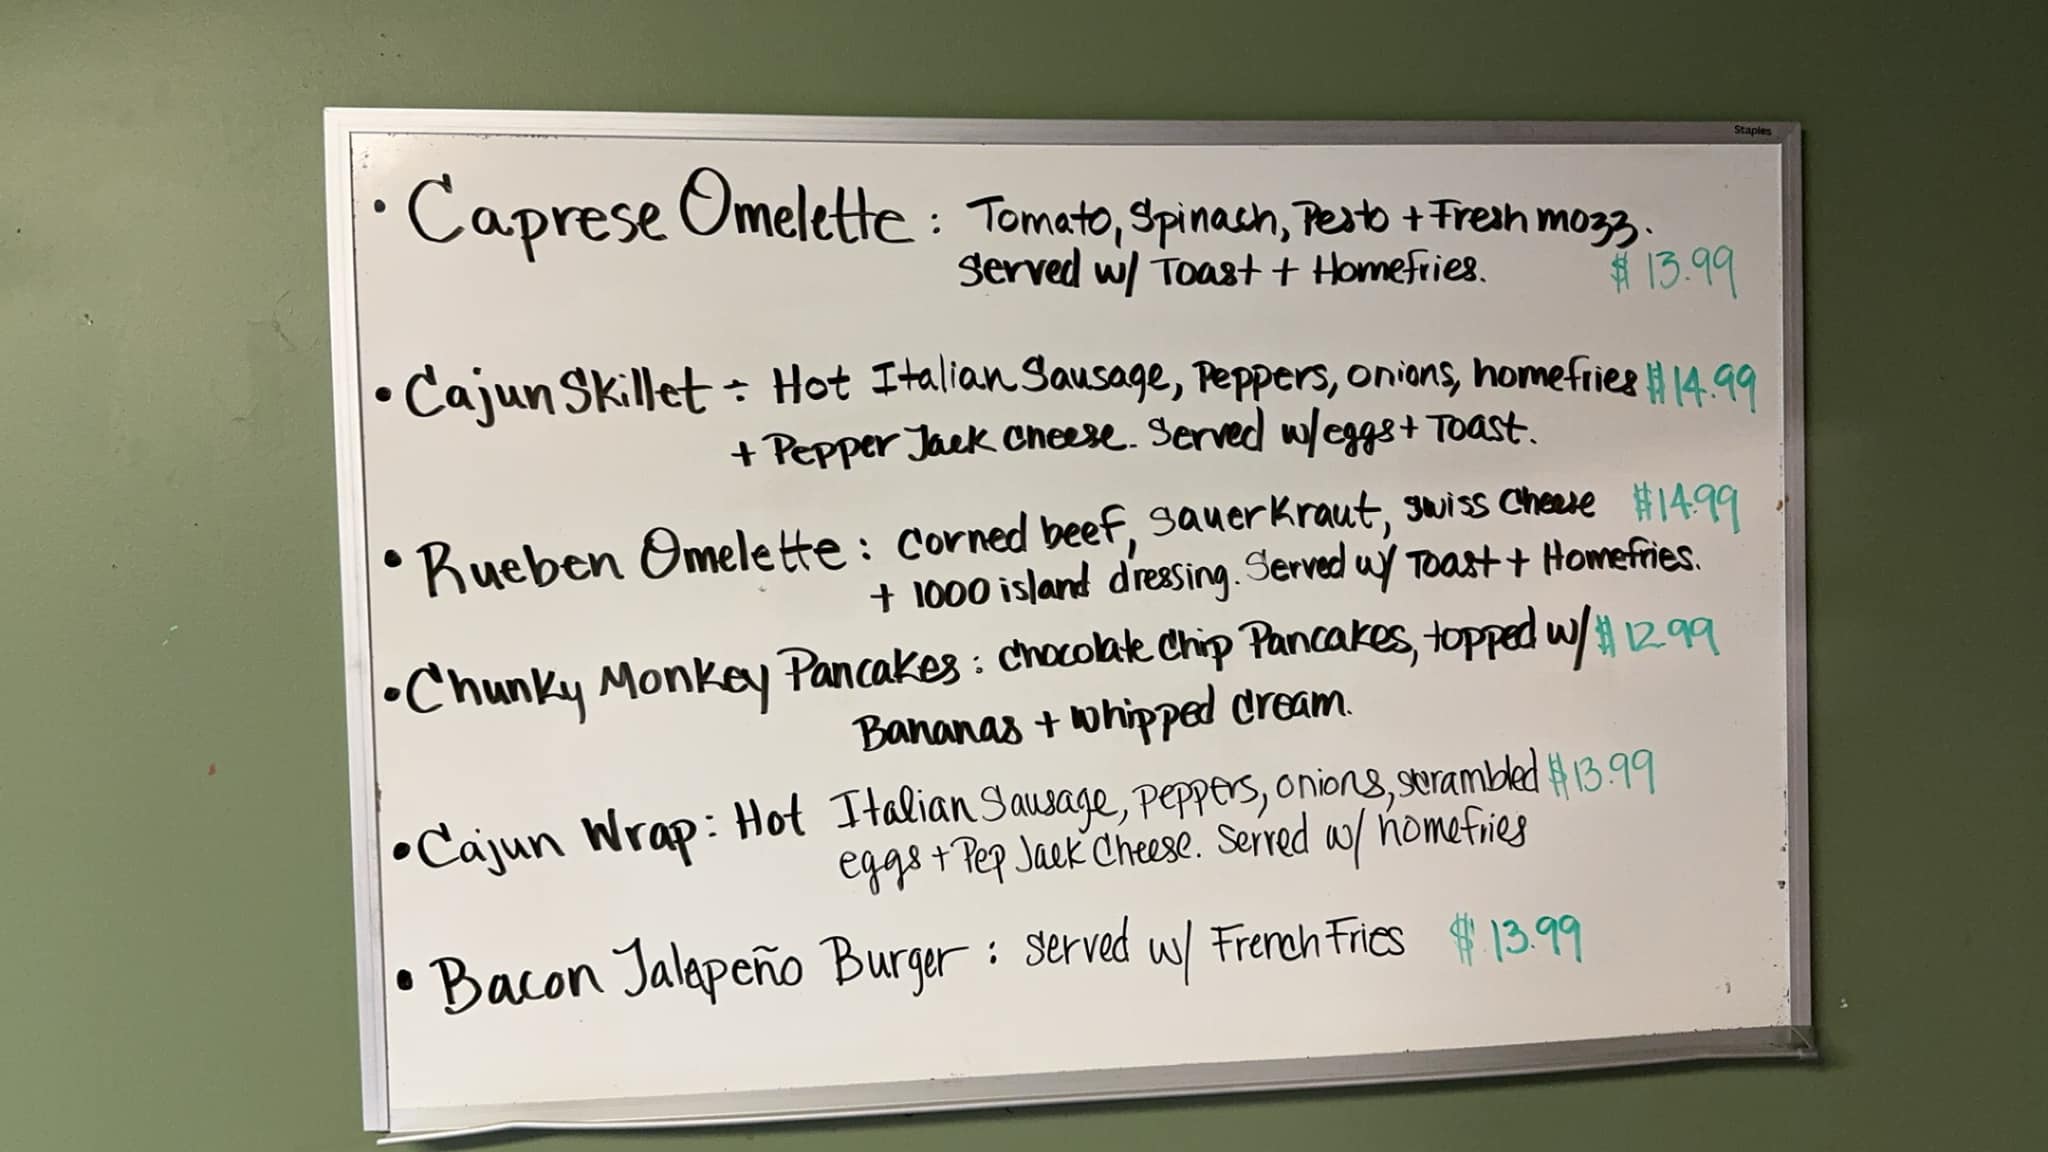 Staples
• Caprese Omelette : Tomato, Spinach, Pesto + Fresh mozz.
Served w/ Toast + Homefries. $13.99
• Cajun Skillet ÷ Hot Italian Sausage, Peppers, onions, homefries $14.99
+ Pepper Jack cheese. Served w/eggs + Toast.
• Rueben Omelette : corned beef, sauerkraut, swiss cheese $14.99
+ 1000 island dressing. Served w/ Toast + Homefries.
• Chunky Monkey Pancakes : chocolate chip Pancakes, topped w/ $12.99
Bananas + whipped cream.
• Cajun Wrap : Hot Italian Sausage, peppers, onions, scrambled $13.99
eggs + Pep Jack Cheese. Served w/ homefries
• Bacon Jalapeño Burger : served w/ French Fries $13.99